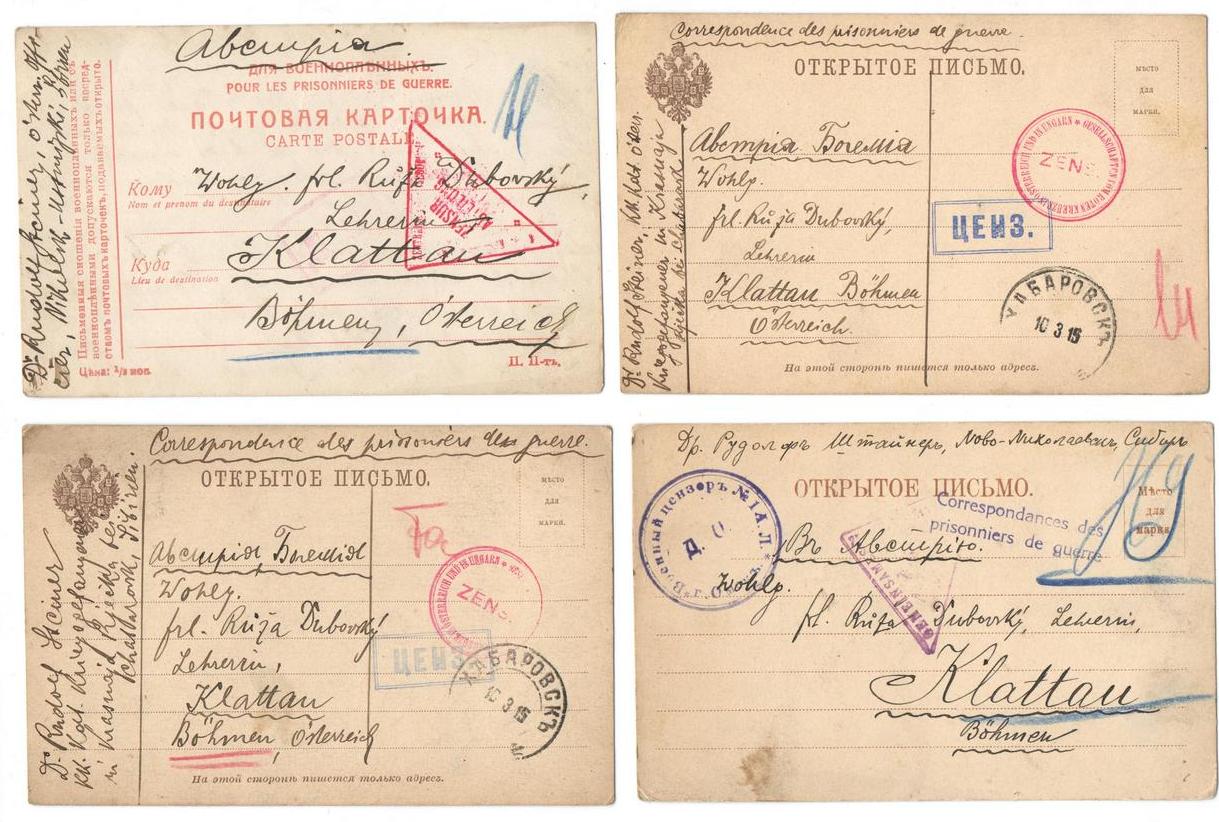 Австрія
ДЛЯ ВОЕННОПЛѢННЫХЪ.
POUR LES PRISONNIERS DE GUERRE.
ПОЧТОВАЯ КАРТОЧКА.
CARTE POSTALE
Кому
Nom et prenom du destinataire
Wohlg. frl. Růža Dubovský,
Lehrerin
Куда
Lieu de destination
Klattau
Böhmen, Österreich
Цѣна: 1/2 коп.
П. П-тъ.
Письменныя сношенія военноплѣнныхъ или съ
военноплѣнными допускаются только посред-
ствомъ почтовыхъ карточекъ, подаваемыхъ открыто.
Correspondence des prisonniers de guerre.
ОТКРЫТОЕ ПИСЬМО.
МѢСТО
ДЛЯ
МАРКИ.
Австрія Богемія
Wohlg.
frl. Růža Dubovský,
Lehrerin
Klattau Böhmen
Österreich.
ZENS.
ЦЕНЗ.
ХАБАРОВСКЪ
10 3 15
На этой сторонѣ пишется только адресъ.
Dr Rudolf Steiner,
Kriegsgefangener in Krasnaja
Rjetschka bei Chabarowsk
Correspondence des prisoniers de guerre.
ОТКРЫТОЕ ПИСЬМО.
МѢСТО
ДЛЯ
МАРКИ.
Австрія, Богемія
Wohlg.
frl. Růža Dubovský
Lehrerin,
Klattau
Böhmen, Österreich
ZENS.
ЦЕНЗ.
ХАБАРОВСКЪ
10 3 15
На этой сторонѣ пишется только адресъ.
Dr Rudolf Steiner
KK. Kdt. Kriegsgefangener
Chabarowsk, Sibirien.
Др. Рудольфъ Штайнеръ, Ново-Николаевскъ, Сибирь
ОТКРЫТОЕ ПИСЬМО.
Мѣсто
для
марки
Correspondances des
prisonniers de guerre
Военный цензоръ № 1 А. Л.
Д. О.
Въ Австрію.
Wohlg.
frl. Růža Dubovský, Lehrerin,
Klattau
Böhmen